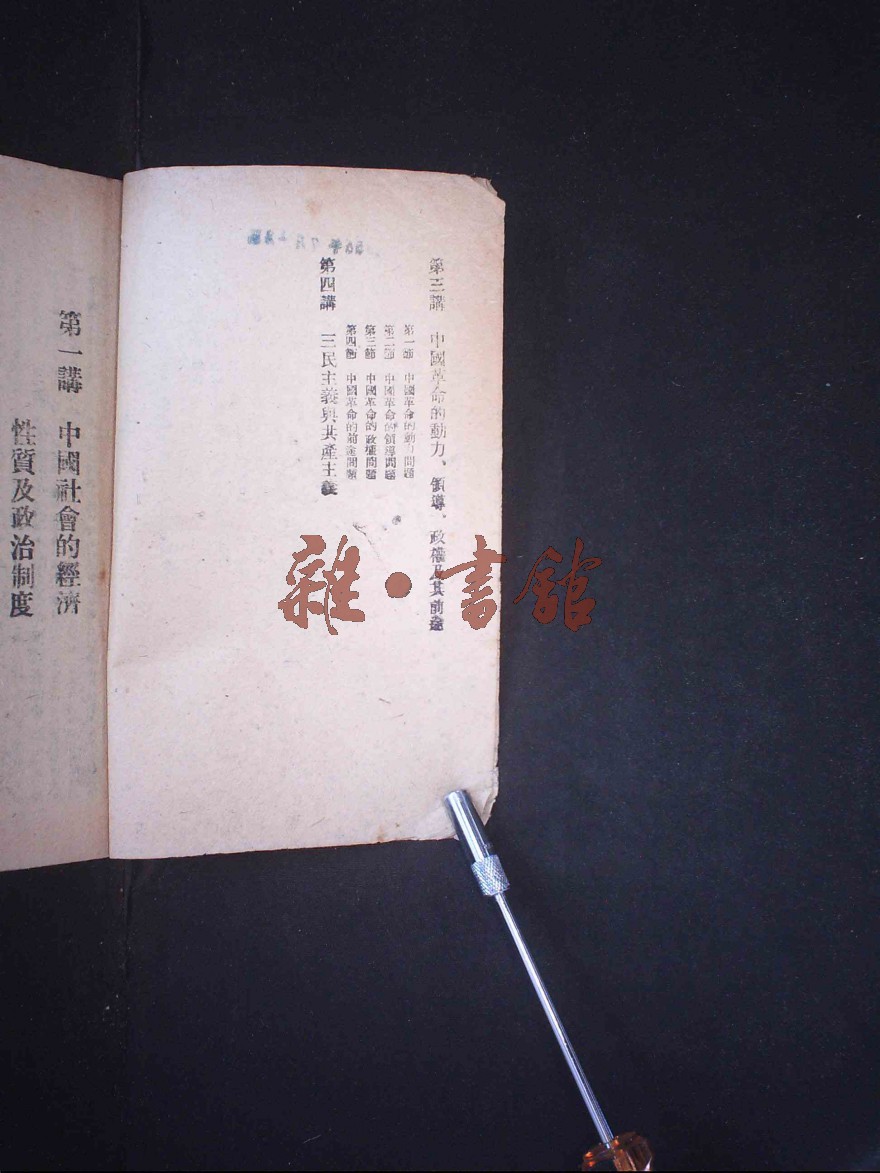 第三講　中國革命的動力、領導、政權及其前途
第一節　中國革命的動力問題
第二節　中國革命的領導問題
第三節　中國革命的政權問題
第四節　中國革命的前途問題
第四講　三民主義與共產主義
第一講　中國社會的經濟
性質及政治制度
雜·書館